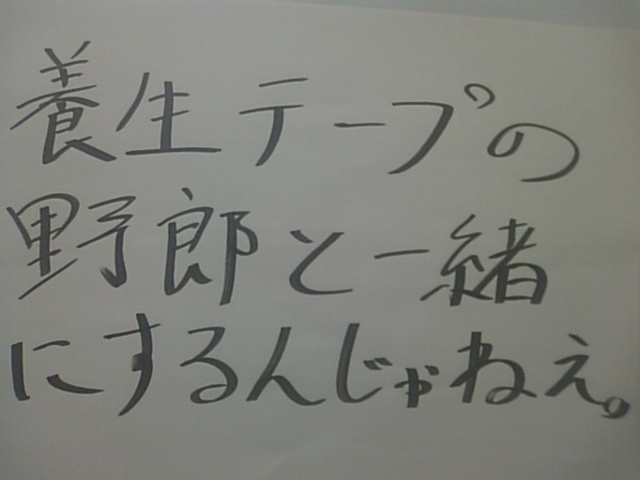 養生テープの
野郎と一緒
にするんじゃねぇ。